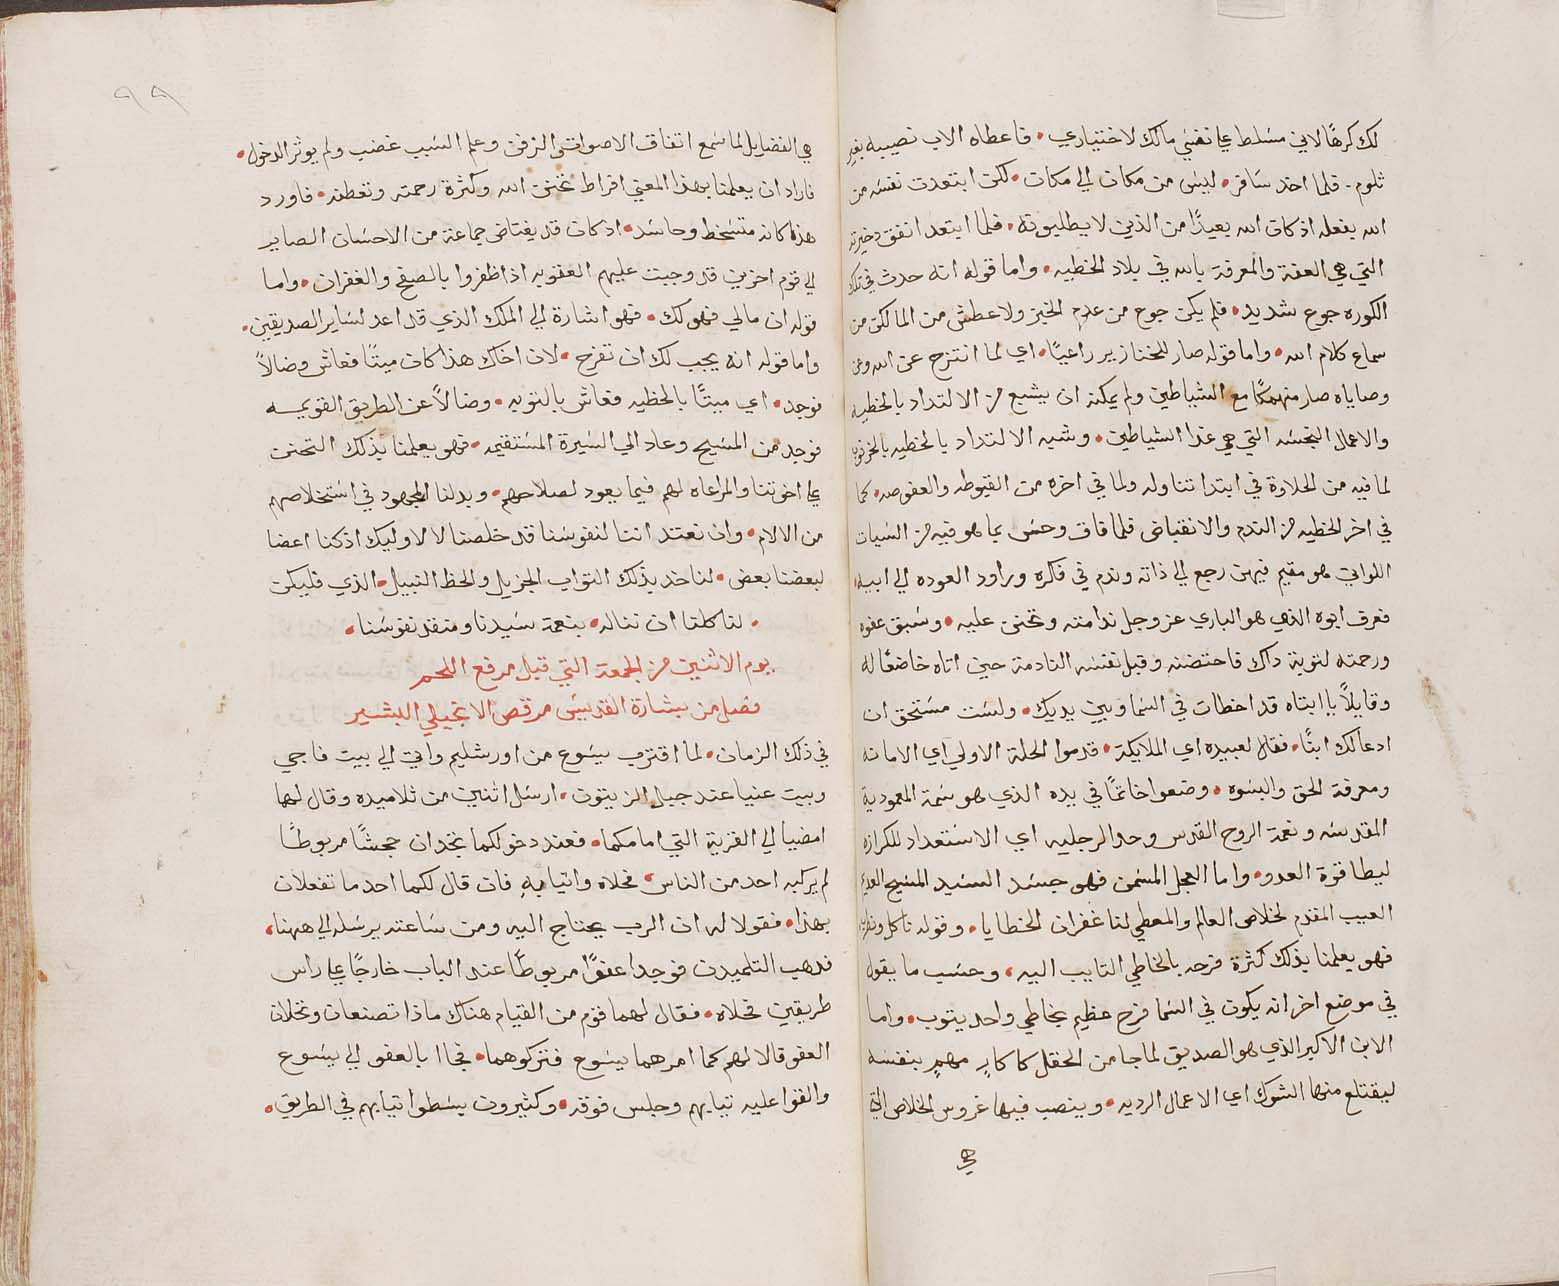 لك كرهًا لاني مسلط علي نفسي مالك لاختياري • فاعطاه الاب نصيبه بغير
ثلوم • فلما اخد سافر • ليس من مكان الي مكان • لكن ابتعدت نفسه من
الله بفعله اذ كان الله بعيدًا من الذين لا يطلبونه • فلما ابتعد انفق دخيرته
التي هي العفة والمعرفة بالله في بلاد الخطيه • واما قوله انه حدث في تلك
الكوره جوع شديد • فلم يكن جوع من عدم الخبز ولا عطش من الما لكن من
سماع كلام الله • واما قوله صار للخنازير راعيًا • اي لما انتزح عن الله وعن
وصاياه صار منهمكًا مع الشياطين ولم يمكنه ان يشبع من الالتداد بالخطيه
والاعمال النجسه التي هي غدا الشياطين • وشبه الالتداد بالخطيه بالخرنوب
لما فيه من الحلاوة في ابتدا تناوله ولما في اخره من القبوطه والعفوصه • كما
في اخر الخطيه من الندم والانقباض فلما فاق وحس بما هو فيه من السيات
اللواتي هو مقيم فيهن رجع الي ذاته وندم في فكره وراود العوده الي ابيه
فعرف ابوه الذي هو الباري عز وجل ندامته وتحنن عليه • وسبق عفوه
ورحمته لتوبة داك فاحتضنه وقبل نفسه النادمة حين اتاه خاضعًا له
وقايلًا يا ابتاه قد اخطات في السما وبين يديك • ولست مستحق ان
ادعا لك ابنًا • فقال لعبيده اي الملايكة • قدموا الحلة الاولي اي الامانه
ومعرفة الحق والبنوه • وضعوا خاتمًا في يده الذي هو سمة المعمودية
المقدسه ونعمة الروح القدس وحدا لرجليه اي الاستعداد للكرازه
ليطا قوة العدو • واما العجل المسمن فهو جسد السيد المسيح العديم
العيب المقدم لخلاص العالم والمعطي لنا غفران الخطايا • وقوله ناكل ونفرح
فهو يعلمنا بذلك كثرة فرحه بالخاطي التايب اليه • وحسب ما يقول
في موضع اخر انه يكون في السما فرح عظيم بخاطي واحد يتوب • واما
الابن الاكبر الذي هو الصديق لما جا من الحقل كاكارٍ مهمٍ بنفسه
ليقتلع منها الشوك اي الاعمال الرديه • وينصب فيها غروس الخلاص التي
هي
٩٩
هي الفضايل لما سمع اتفاق الاصوات والزفن وعلم السبب غضب ولم يوثر الدخول •
فاراد ان يعلمنا بهذا المعني افراط تحنن الله وكثرة رحمته وتعطفه • فاورد
هذا كانه متسخط وحاسد • اذ كان قد يغتاض جماعة من الاحسان الصاير
الي قوم اخرين قد وجبت عليهم العقوبه اذا ظفروا بالصفح والغفران • واما
قوله ان مالي فهو لك • فهو اشارة الي الملك الذي قد اعد لساير الصديقين •
واما قوله انه يجب لك ان تفرح • لان اخاك هذا كان ميتًا فعاش وضالًا
فوجد • اي ميتًا بالخطيه فعاش بالتوبه • وضالًا عن الطريق القويمه
فوجد من المسيح وعاد الي السيرة المستقيمه • فهو يعلمنا بذلك التحنن
علي اخوتنا والمراعاه لهم فيما يعود لصلاحهم • وبدلنا المجهود في استخلاصهم
من الالام • وان نعتد اننا لنفوسنا قد خلصنا لا لاوليك اذ كنا اعضا
لبعضنا بعض • لناخد بذلك التواب الجزيل والحظ النبيل • الذي فليكن
• لنا كلنا ان نناله • بنعمة سيدنا ومنقد نفوسنا •
يوم الاثنين من الجمعة التي قبل مرفع اللحم
فصل من بشارة القديس مرقص الانجيلي البشير
في ذلك الزمان • لما اقترب يسوع من اورشليم واتي الي بيت فاجي
وبيت عنيا عند جبل الزيتون • ارسل اثنين من تلاميده وقال لهما
امضيا الي القرية التي امامكما • فعند دخولكما تجدان جحشًا مربوطًا
لم يركبه احد من الناس • فحلاه واتيا به فان قال لكما احد ما تفعلان
بهذا • فقولا له ان الرب يحتاج اليه ومن ساعته يرسله الي ههنا •
فدهب التلميدن فوجدا عفوًا مربوطًا عند الباب خارجًا علي راس
طريقين فحلاه • فقال لهما قوم من القيام هناك ماذا تصنعان وتحلان
العفو قالا لهم كما امرهما يسوع فتركوهما • فجاا بالعفو الي يسوع
والقوا عليه تيابهم وجلس فوقه • وكثيرون بسطوا تيابهم في الطريق •